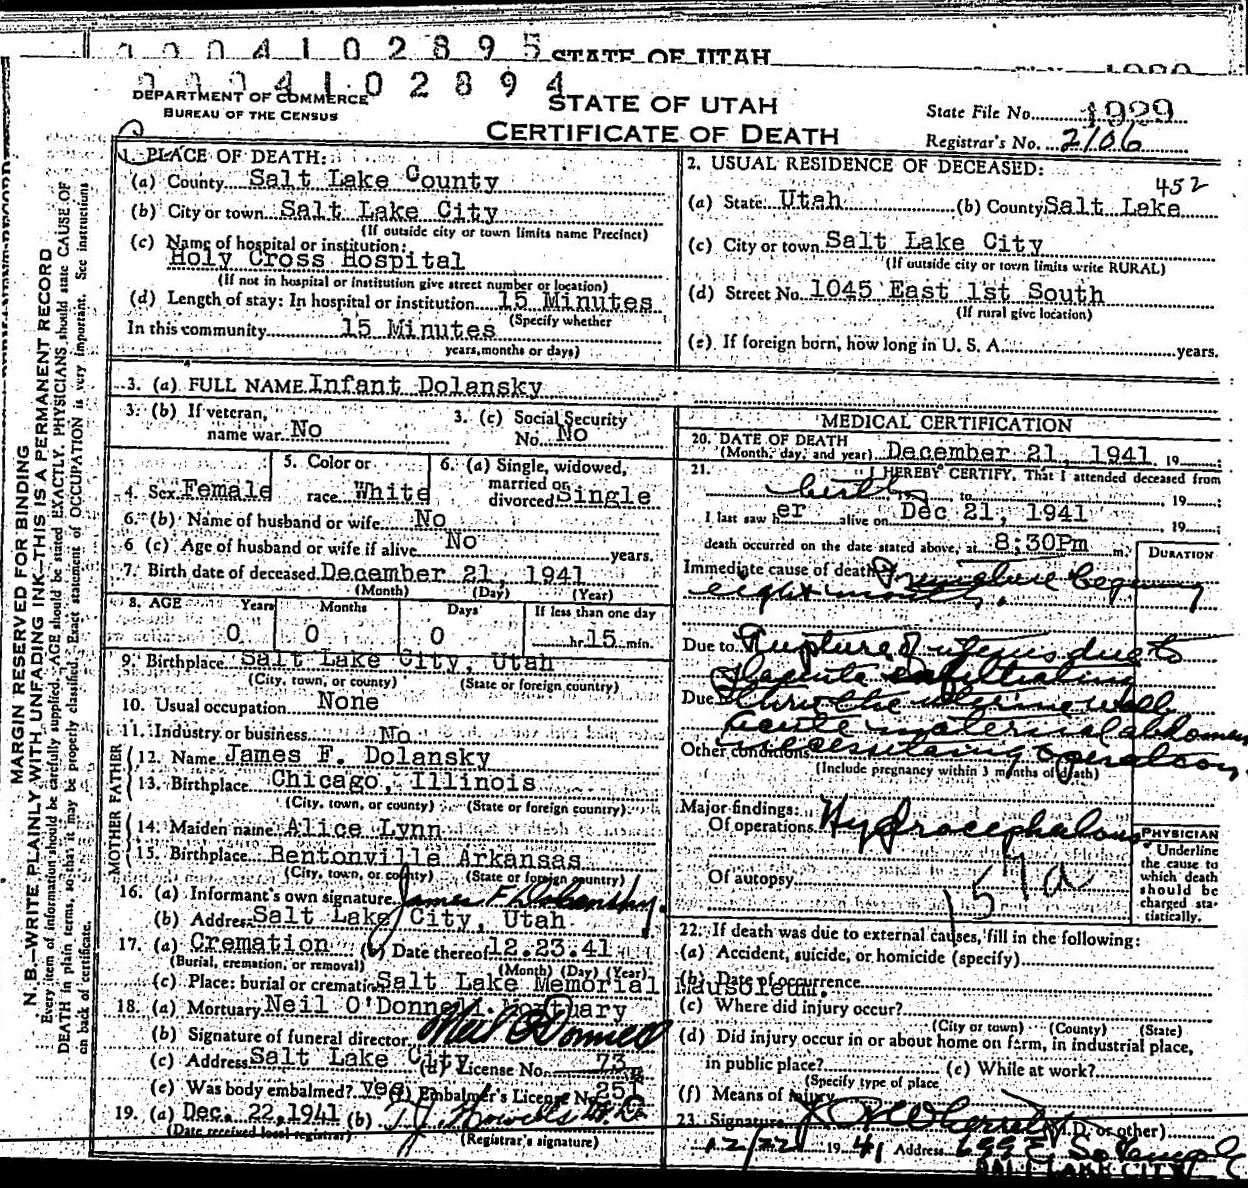 0004102895 STATE OF UTAH
0004102894
DEPARTMENT OF COMMERCE
BUREAU OF THE CENSUS
STATE OF UTAH
CERTIFICATE OF DEATH
State File No. 1929
Registrar's No. 2106
MARGIN RESERVED FOR BINDING
N. B.—WRITE PLAINLY WITH UNFADING INK—THIS IS A PERMANENT RECORD
Every item of information should be carefully supplied. AGE should be stated EXACTLY. PHYSICIANS should state CAUSE OF
DEATH in plain terms, so that it may be properly classified. Exact statement of OCCUPATION is very important. See instructions
on back of certificate.
1. PLACE OF DEATH:
(a) County Salt Lake County
(b) City or town Salt Lake City
(If outside city or town limits name Precinct)
(c) Name of hospital or institution:
Holy Cross Hospital
(If not in hospital or institution give street number or location)
(d) Length of stay: In hospital or institution 15 Minutes
(Specify whether
In this community 15 Minutes
years, months or days)
2. USUAL RESIDENCE OF DECEASED:
452
(a) State Utah (b) County Salt Lake
(c) City or town Salt Lake City
(If outside city or town limits write RURAL)
(d) Street No. 1045 East 1st South
(If rural give location)
(e) If foreign born, how long in U. S. A. years.
3. (a) FULL NAME Infant Dolansky
3. (b) If veteran,
name war No
3. (c) Social Security
No. No
4. Sex Female
5. Color or
race White
6. (a) Single, widowed,
married or
divorced Single
6. (b) Name of husband or wife No
6 (c) Age of husband or wife if alive No years.
7. Birth date of deceased December 21, 1941
(Month) (Day) (Year)
8. AGE Years Months Days If less than one day
0 0 0 hr. 15 min.
9. Birthplace Salt Lake City, Utah
(City, town, or county) (State or foreign country)
10. Usual occupation None
11. Industry or business No
FATHER
12. Name James F. Dolansky
13. Birthplace Chicago, Illinois
(City, town, or county) (State or foreign country)
MOTHER
14. Maiden name Alice Lynn
15. Birthplace Bentonville Arkansas
(City, town, or county) (State or foreign country)
16. (a) Informant's own signature James F Dolansky
(b) Address Salt Lake City, Utah
17. (a) Cremation (b) Date thereof 12.23.41
(Burial, cremation, or removal) (Month) (Day) (Year)
(c) Place: burial or cremation Salt Lake Memorial Mausoleum.
18. (a) Mortuary Neil O'Donnell Mortuary
(b) Signature of funeral director Neil O'Donnell
(c) Address Salt Lake City (d) License No. 73
(e) Was body embalmed? yes (f) Embalmer's License No. 251
19. (a) Dec. 22, 1941 (b) T. J. Howells
(Date received local registrar) (Registrar's signature)
MEDICAL CERTIFICATION
20. DATE OF DEATH
(Month, day, and year) December 21, 1941 19
21. I HEREBY CERTIFY, That I attended deceased from
birth to 19
I last saw her alive on Dec 21, 1941 19
death occurred on the date stated above, at 8:30Pm m.
DURATION
Immediate cause of death Premature
eight months.
Due to Rupture of uterus due to
Placenta infiltrating
Due to thru the uterine wall
acute maternal abdomen
Other conditions necessitating operation.
(Include pregnancy within 3 months of death)
Major findings:
Of operations Hydrocephalous
Of autopsy
157a
PHYSICIAN
Underline
the cause to
which death
should be
charged sta-
tistically.
22. If death was due to external causes, fill in the following:
(a) Accident, suicide, or homicide (specify)
(b) Date of occurrence
(c) Where did injury occur?
(City or town) (County) (State)
(d) Did injury occur in or about home on farm, in industrial place,
in public place? (e) While at work?
(Specify type of place
(f) Means of injury
23. Signature (M.D. or other)
12/22 1941 Address 699 E So Temple
SALT LAKE CITY